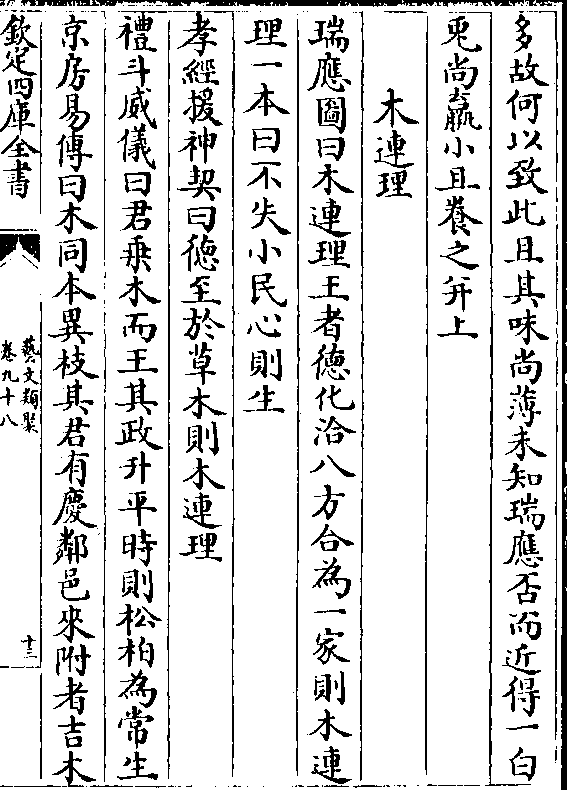 多故何以致此且其味尚薄未知瑞應否而近得一白
兎尚羸小且養之并上
木連理
瑞應圖曰木連理王者德化洽八方合為一家則木連
理一本曰不失小民心則生
孝經援神契曰德至於草木則木連理
禮斗威儀曰君乗木而王其政升平時則松柏為常生
京房易傳曰木同本異枝其君有慶鄰邑來附者吉木
欽定四庫全書
藝文類聚
卷九十八
十三